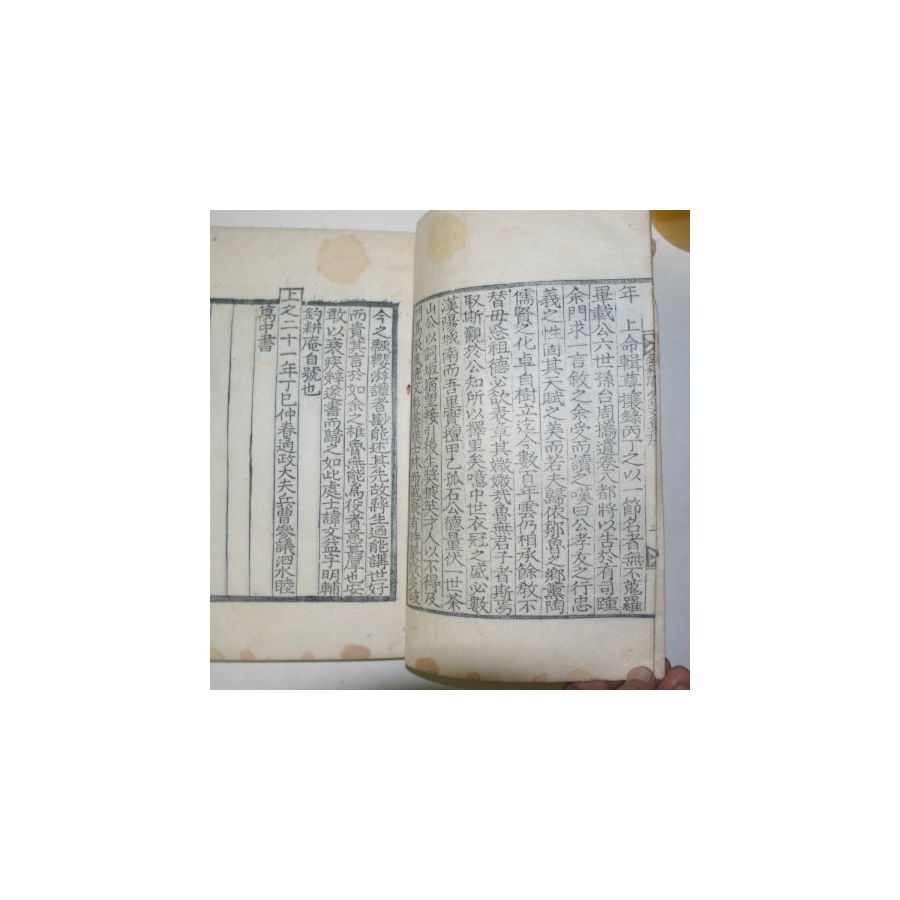 年 上命輯尊攘錄丙丁之以一節名者無不蒐羅
畢載公六世孫台周攜遺卷入都將以告於有司踵
余門求一言敍之余受而讀之嘆曰公孝友之行忠
義之性固其天賦之美而若夫歸依鄒魯之鄕薰陶
儒賢之化卓自樹立迄今數百年雲仍相承餘敎不
替毋忝祖德必欲表章其媺哉魯無君子者斯焉
取斯觀於公知所以擇里矣噫中世衣冠之盛必數
漢陽城南而吾里實擅甲乙孤石公德量伏一世茶
山公以詞垣宿望接引後生奬掖英才人以不得及
今之飄纓游讌者尠能述其先故蔣生迺能講世好
而貴其言於如余之椎魯無能爲役者意甚厚也安
敢以衰疾辭遂書而歸之如此處士諱文益字明輔
釣耕庵自號也
上之二十一年丁巳仲春通政大夫兵曹參議泗水睦
萬中書